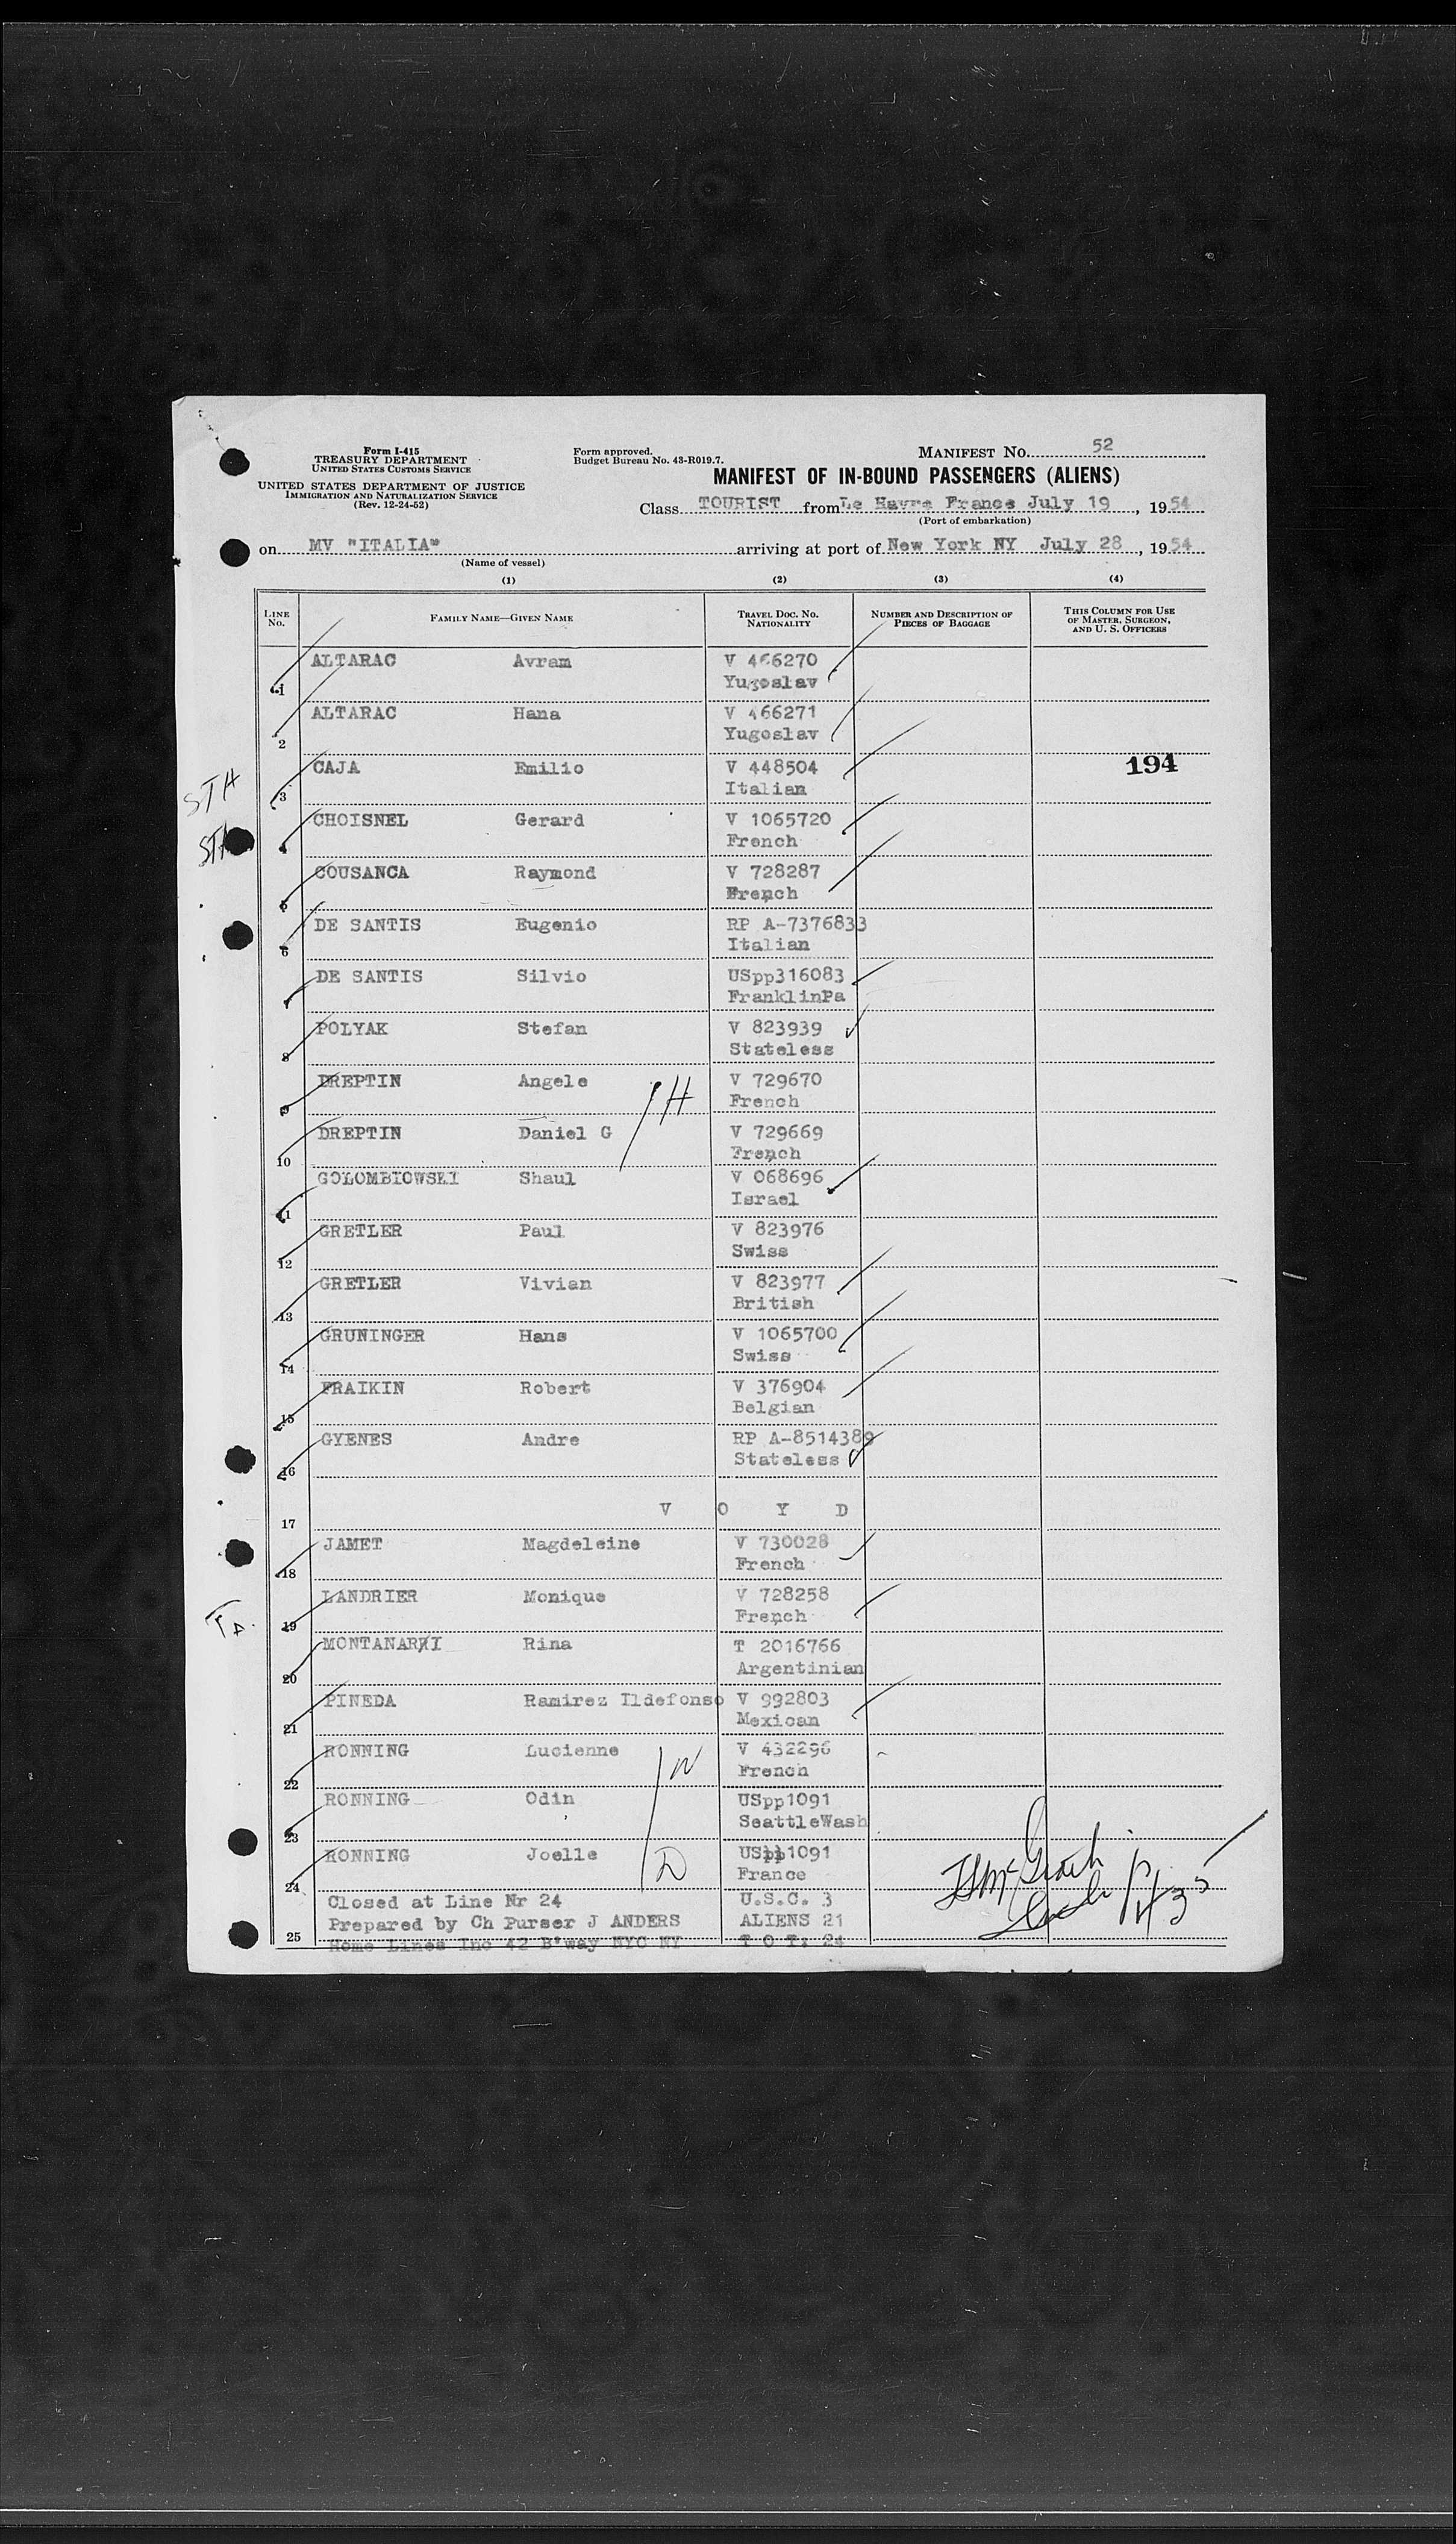 Form I-415
TREASURY DEPARTMENT
UNITED STATES CUSTOMS SERVICE
UNITED STATES DEPARTMENT OF JUSTICE
IMMIGRATION AND NATURALIZATION SERVICE
(Rev. 12-24-52)
Form approved.
Budget Bureau No. 43-R019.7.
MANIFEST NO. 52
MANIFEST OF IN-BOUND PASSENGERS (ALIENS)
Class TOURIST from Le Havre France July 19, 1954
(Port of embarkation)
on MV "ITALIA" arriving at port of New York NY July 28, 1954
(Name of vessel)
(1) (2) (3) (4)
LINE NO. FAMILY NAME—GIVEN NAME TRAVEL DOC. NO. NATIONALITY NUMBER AND DESCRIPTION OF PIECES OF BAGGAGE THIS COLUMN FOR USE OF MASTER, SURGEON, AND U. S. OFFICERS
1 ALTARAC Avram V 466270
Yugoslav
2 ALTARAC Hana V 466271
Yugoslav
STH
3 CAJA Emilio V 448504 194
Italian
4 CHOISNEL Gerard V 1065720
French
5 COUSANCA Raymond V 728287
French
6 DE SANTIS Eugenio RP A-7376833
Italian
7 DE SANTIS Silvio USpp316083
FranklinPa
8 POLYAK Stefan V 823939
Stateless
9 DREPTIN Angele V 729670
French
H
10 DREPTIN Daniel G V 729669
French
11 GOLOMBIOWSKI Shaul V 068696
Israel
12 GRETLER Paul V 823976
Swiss
13 GRETLER Vivian V 823977
British
14 GRUNINGER Hans V 1065700
Swiss
15 FRAIKIN Robert V 376904
Belgian
16 GYENES Andre RP A-8514389
Stateless
17 V O Y D
18 JAMET Magdeleine V 730028
French
19 LANDRIER Monique V 728258
French
20 MONTANARXI Rina T 2016766
Argentinian
21 PINEDA Ramirez Ildefonso V 992803
Mexican
22 RONNING Lucienne V 432296
French
W
23 RONNING Odin USpp1091
SeattleWash
24 RONNING Joelle USpp1091
France
D
25 Closed at Line Nr 24 U.S.C. 3
Prepared by Ch Purser J ANDERS ALIENS 21
Home Lines Inc 42 B'way NYC NY T O T: 24